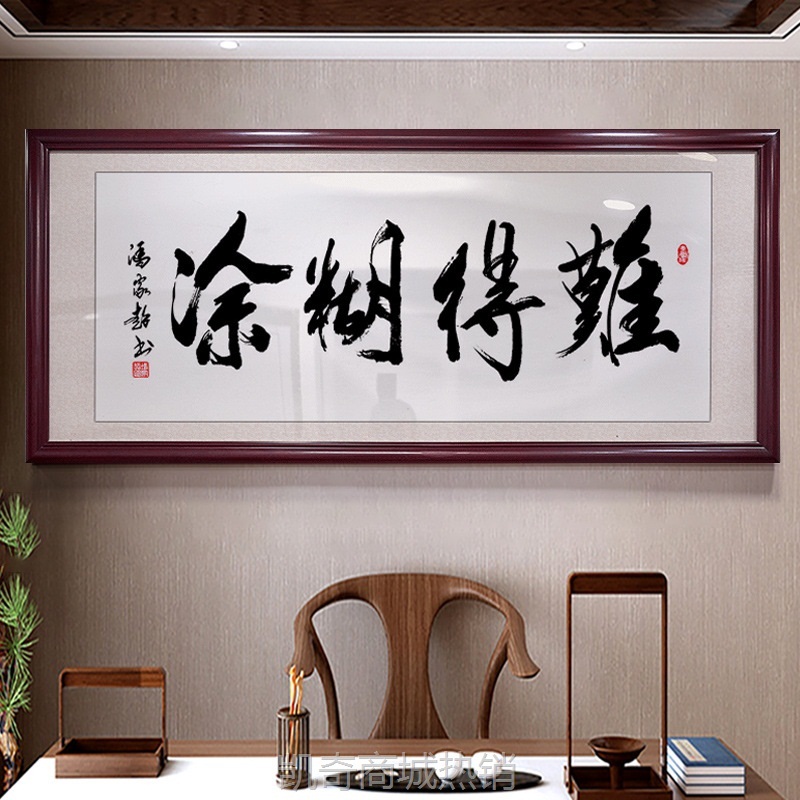 難得糊涂
冯家书
凯奇商城热销